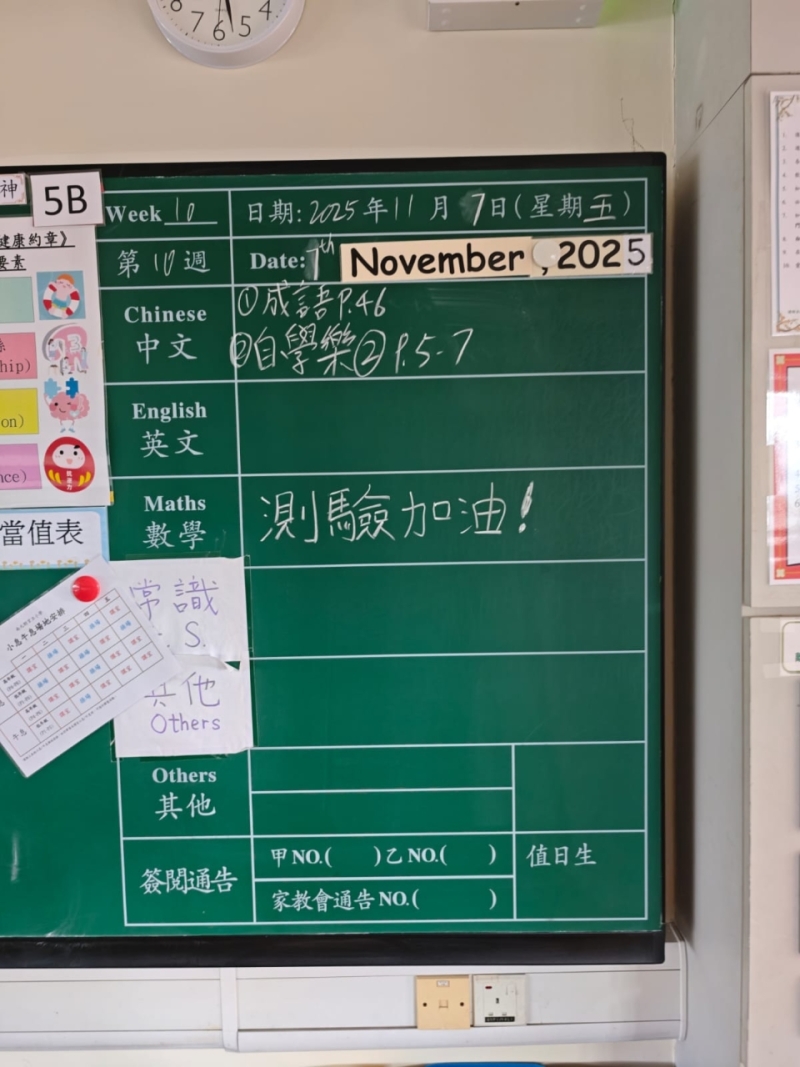 8 7 6 5 4
神
5B
Week 10
日期: 2025 年 11 月 7 日 (星期 五)
健康約章》
要素
第 10 週
Date: 7th November, 2025
Chinese
中文
①成語 P.46
②自學樂② P.5-7
hip)
English
英文
on)
nce)
Maths
數學
測驗加油!
當值表
常識
S.
小息午息場地安排
一 二 三 四 五
午息
其他
Others
Others
其他
簽閱通告
甲 NO.( ) 乙 NO.( )
值日生
家教會通告 NO.( )